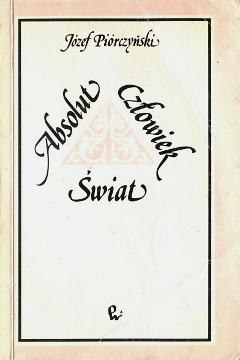 Józef Piórczyński
Absolut
Człowiek
Świat